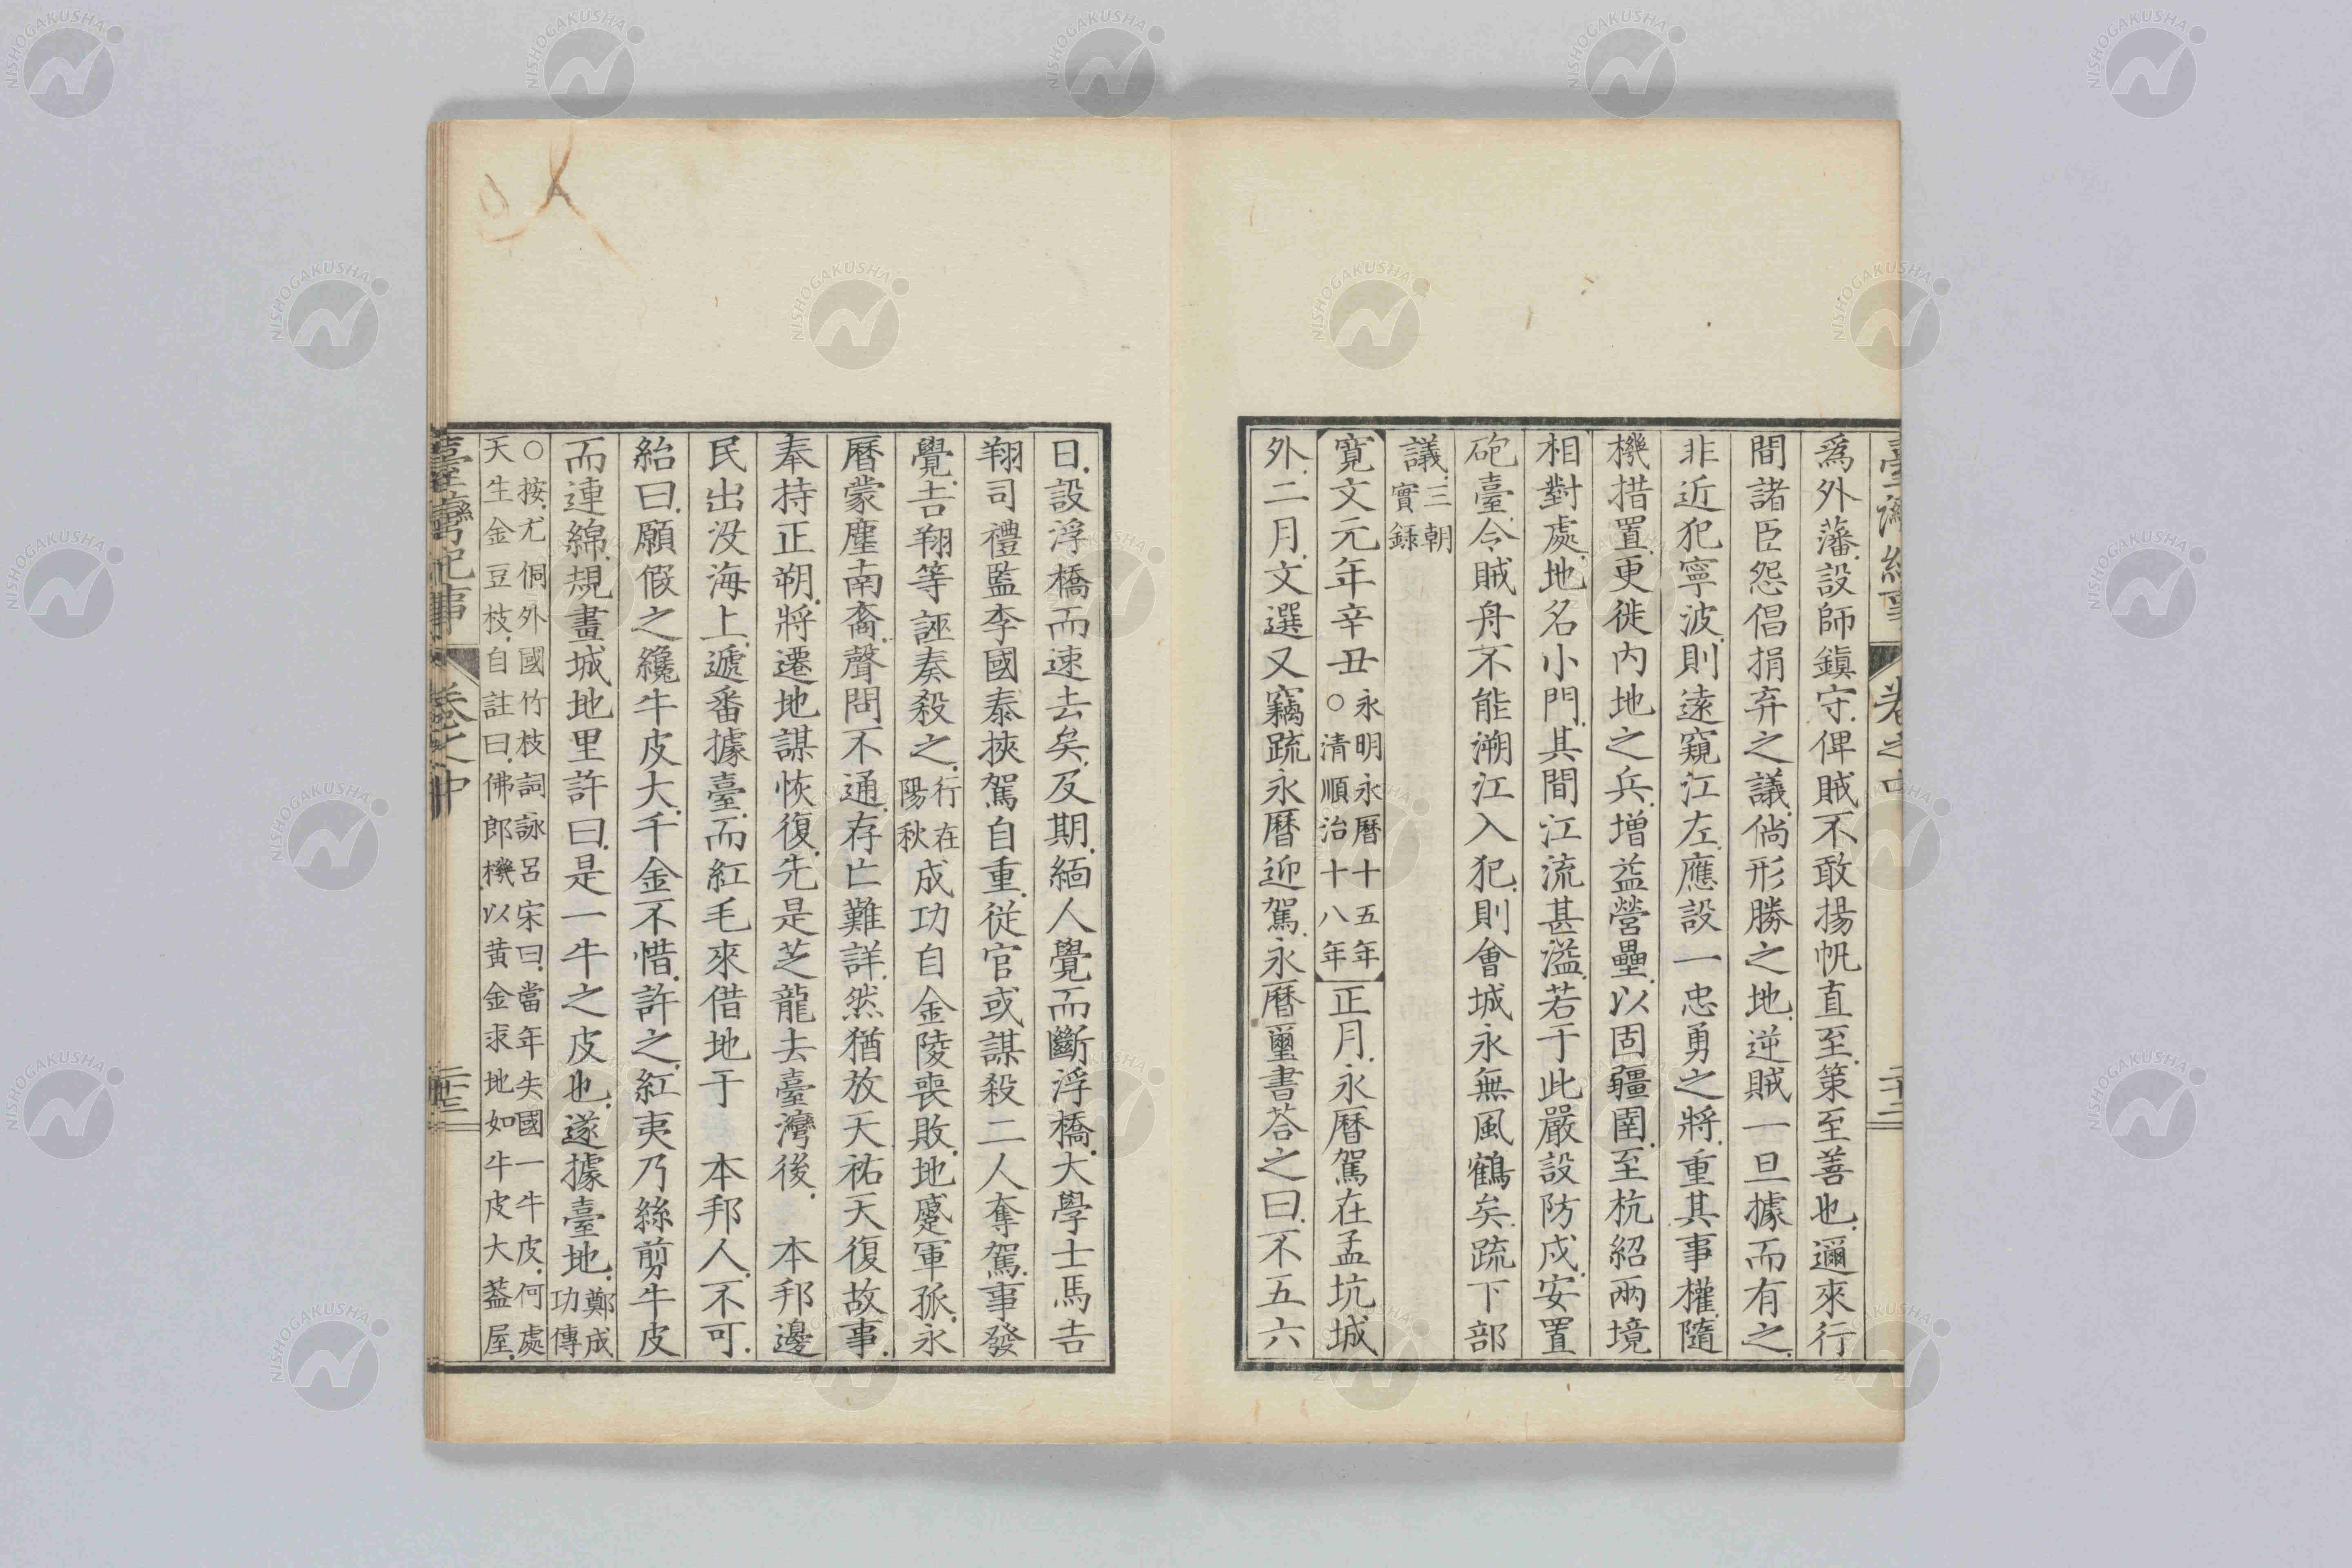 臺灣紀事 卷之中 二十二
爲外藩.設師鎮守.俾賊不敢揚帆直至.策至善也.邇來行
間諸臣.怨倡捐弃之議.倘形勝之地.逆賊一旦據而有之.
非近犯寧波.則遠窺江左.應設一忠勇之將.重其事權.隨
機措置.更徙內地之兵.增益營壘.以固疆圉.至杭紹兩境
相對處.地名小門.其間江流甚溢.若于此嚴設防戍.安置
砲臺.令賊舟不能溯江入犯.則會城永無風鶴矣.疏下部
議.三朝實錄
寬文元年辛丑 永明永曆十五年○清順治十八年 正月.永曆駕在孟坑城
外.二月.文選又竊疏永曆迎駕.永曆璽書荅之曰.不五六
日.設浮橋而速去矣.及期.緬人覺而斷浮橋.大學士馬吉
翔司禮監李國泰挾駕自重.從官或謀殺二人奪駕.事發
覺.吉翔等誣奏殺之.行在陽秋 成功自金陵喪敗.地蹙軍孤.永
曆蒙塵南裔.聲問不通.存亡難詳.然猶放天祐天復故事.
奉持正朔.將遷地謀恢復.先是芝龍去臺灣後.本邦邊
民出没海上.遞番據臺.而紅毛來借地于 本邦人.不可.
紿曰.願假之纔牛皮大.千金不惜.許之.紅夷乃絲剪牛皮
而連綿.規畫城地里許曰.是一牛之皮也.遂據臺地.鄭成功傳
○按.尤侗外國竹枝詞詠呂宋曰.當年失國一牛皮.何處
天生金豆枝.自註曰.佛郎機.以黃金求地如牛皮大葢屋.
臺灣紀事 卷之中 二十三